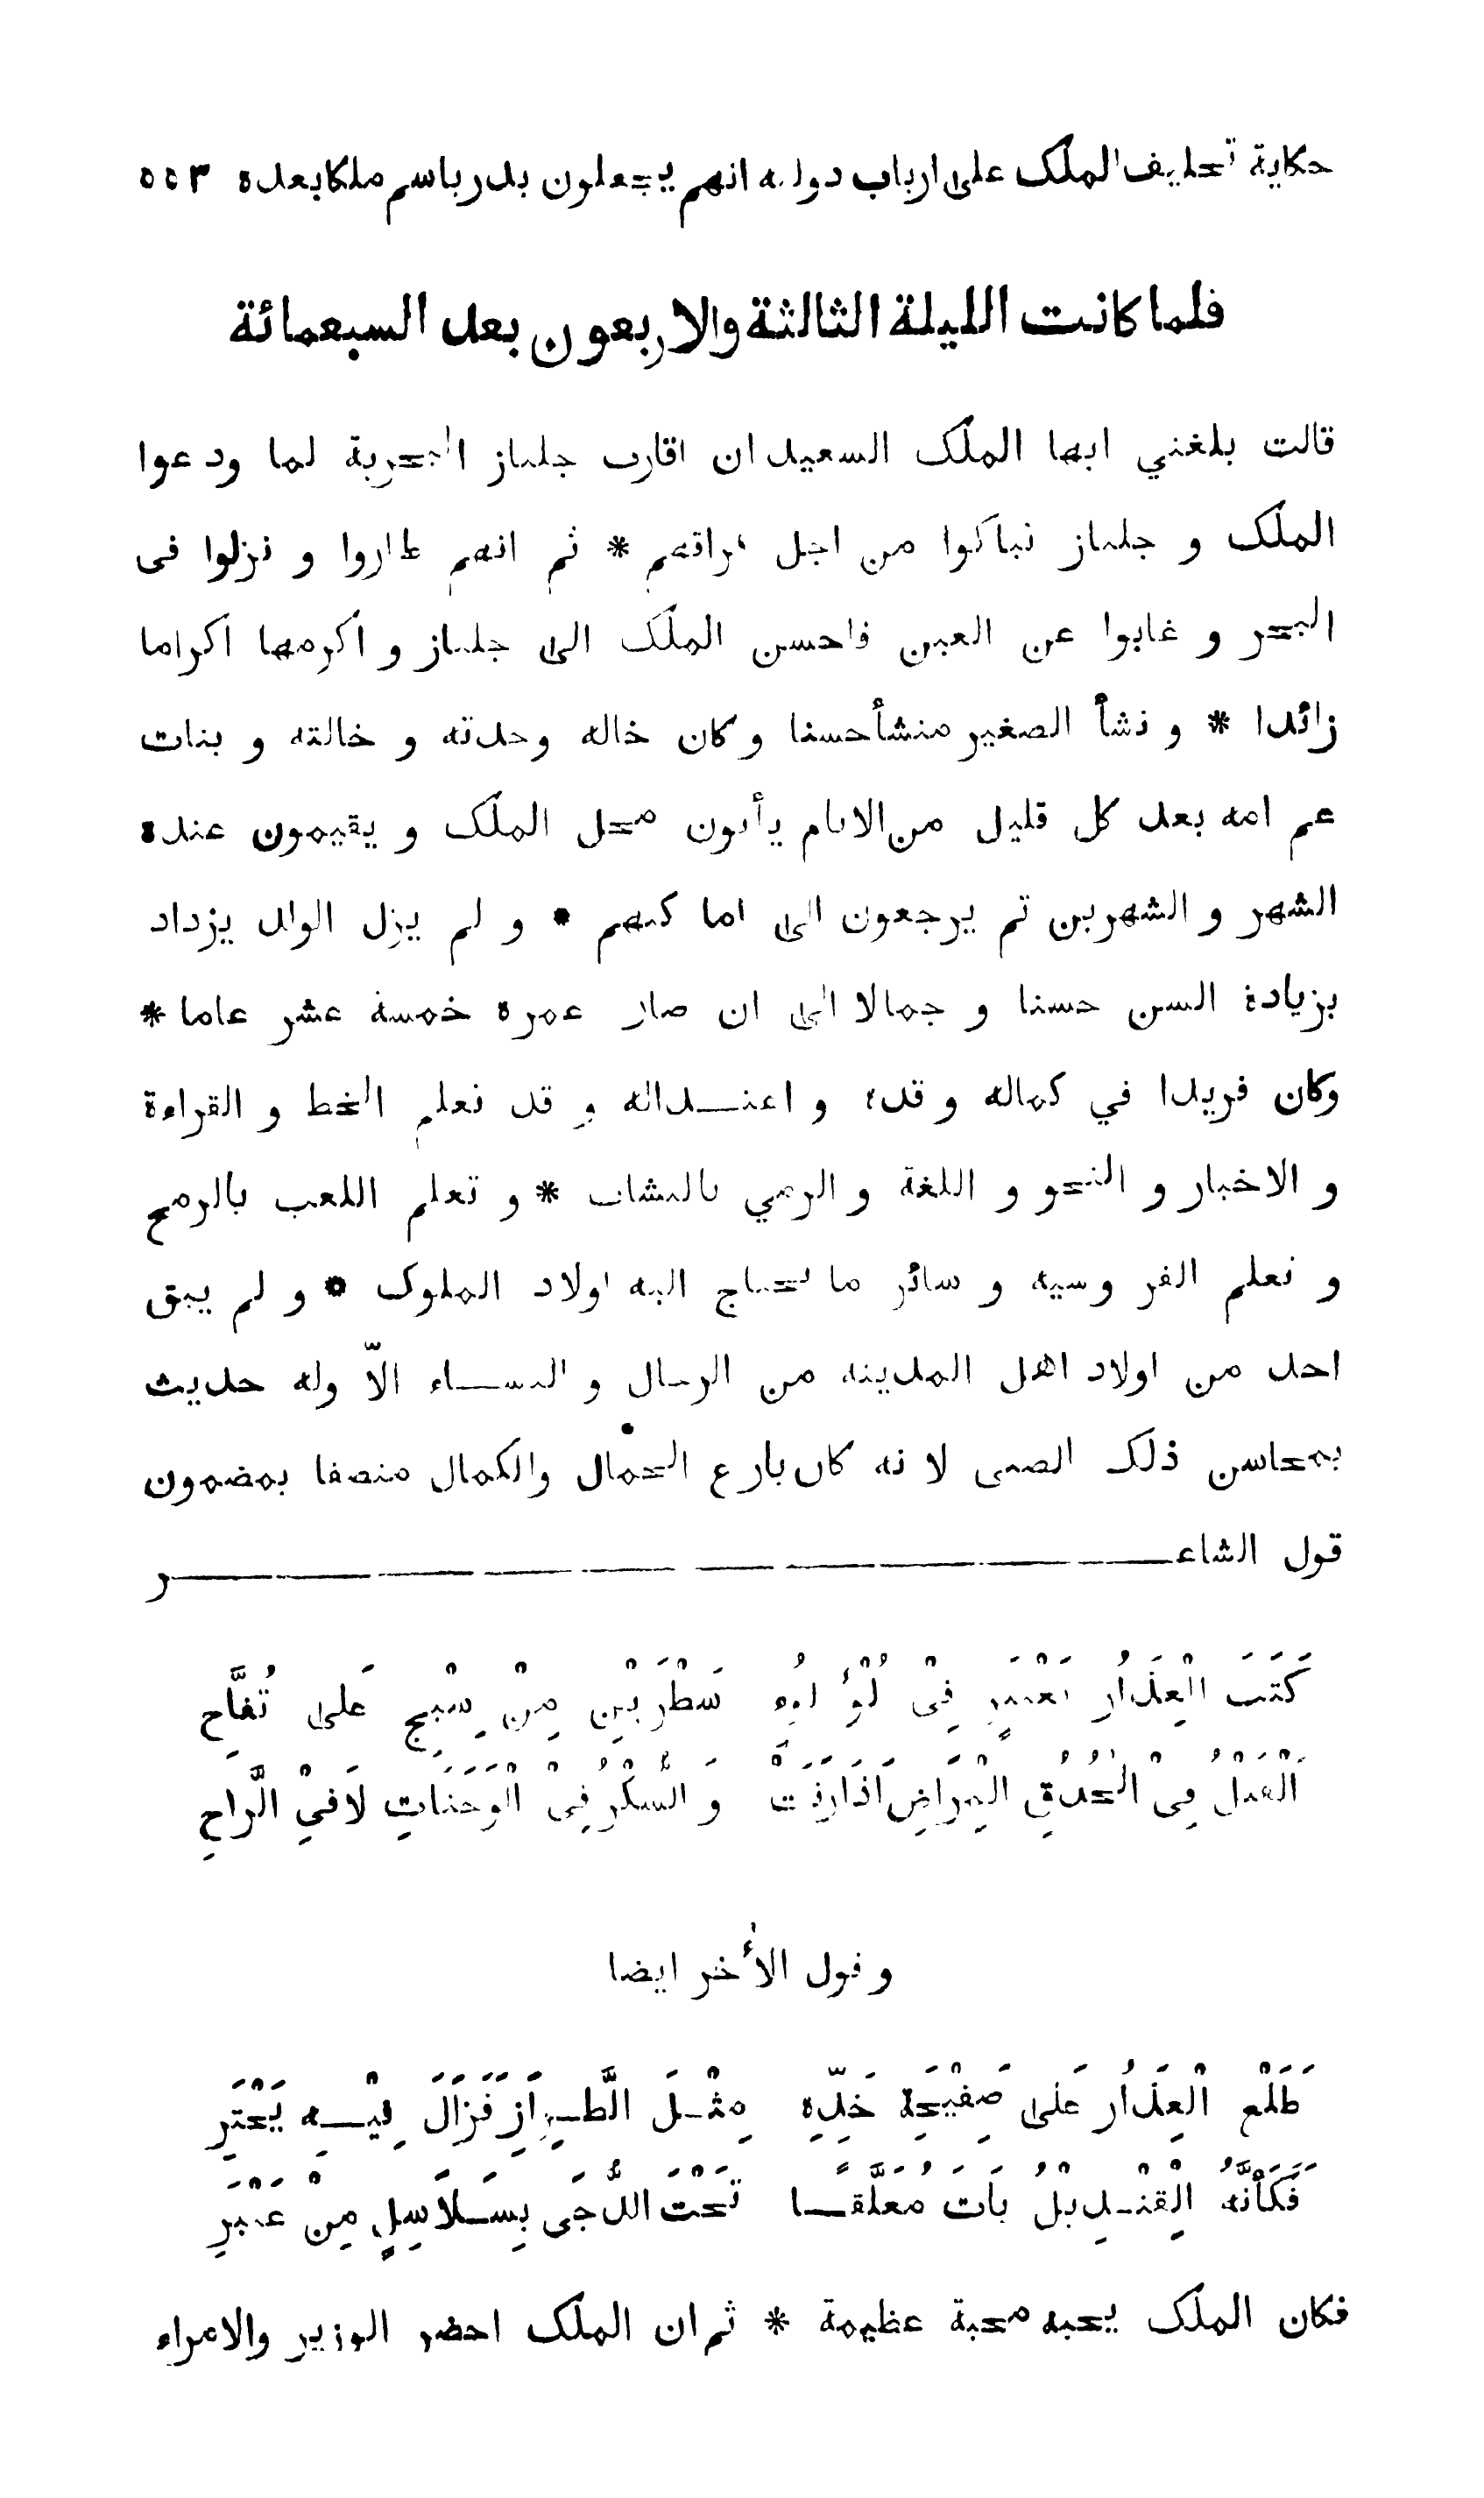 حكاية تحليف الملك على ارباب دولته انهم يجعلون بدر باسم ملكا بعده ٥٥٣
فلما كانت الليلة الثالثة والاربعون بعد السبعمائة
قالت بلغني ايها الملك السعيد ان اقارب جلناز البحرية لما ودعوا
الملك و جلناز تباكوا من اجل فراقهم * ثم انهم طاروا و نزلوا فى
البحر و غابوا عن العين فاحسن الملك الى جلناز و اكرمها اكراما
زائدا * و نشأ الصغير منشأ حسنا و كان خاله وجدته و خالته و بنات
عم امه بعد كل قليل من الايام يأتون محل الملك و يقيمون عنده
الشهر و الشهرين ثم يرجعون الى اماكنهم * و لم يزل الولد يزداد
بزيادة السن حسنا و جمالا الى ان صار عمره خمسة عشر عاما *
وكان فريدا في كماله و قده و اعتـــداله و قد تعلم الخط و القراءة
و الاخبار و النحو و اللغة و الرمي بالنشاب * و تعلم اللعب بالرمح
و تعلم الفروسية و سائر ما يحتاج اليه اولاد الملوك * و لم يبق
احد من اولاد اهل المدينة من الرجال و النســـاء الّا وله حديث
بمحاسن ذلك الصبى لانه كان بارع الجمال والكمال متصفا بمضمون
قول الشاعـــــــــــــــر
كَتَبَ الْعِذَارُ بِعَنْبَرٍ فِيْ لُؤْلُؤٍ سَطْرَيْنِ مِنْ سَبَجٍ عَلى تُفَّاحِ
اَلْقَتْلُ فِى الْحَدَقِ الْمِرَاضِ اَذَا رَنَتْ وَ السُّكْرُ فِىْ الْوَجَنَاتِ لَا فيْ الرَّاحِ
و قول الأخر ايضا
طَلَعَ الْعِذَارُ عَلى صَفِيْحَةِ خَدِّهِ مِثْــلَ الطِّــرَازِ فَزَالَ فِيْــهِ تَحَيُّرِ
فَكَأَنَّهُ الْقِنْــدِيْلُ بَاتَ مُعَلَّقًــا تَحْتَ الدُّجَى بِسَــلَاسِلٍ مِنْ عَنْبَرِ
فكان الملك يحبه محبة عظيمة * ثم ان الملك احضر الوزير والامراء